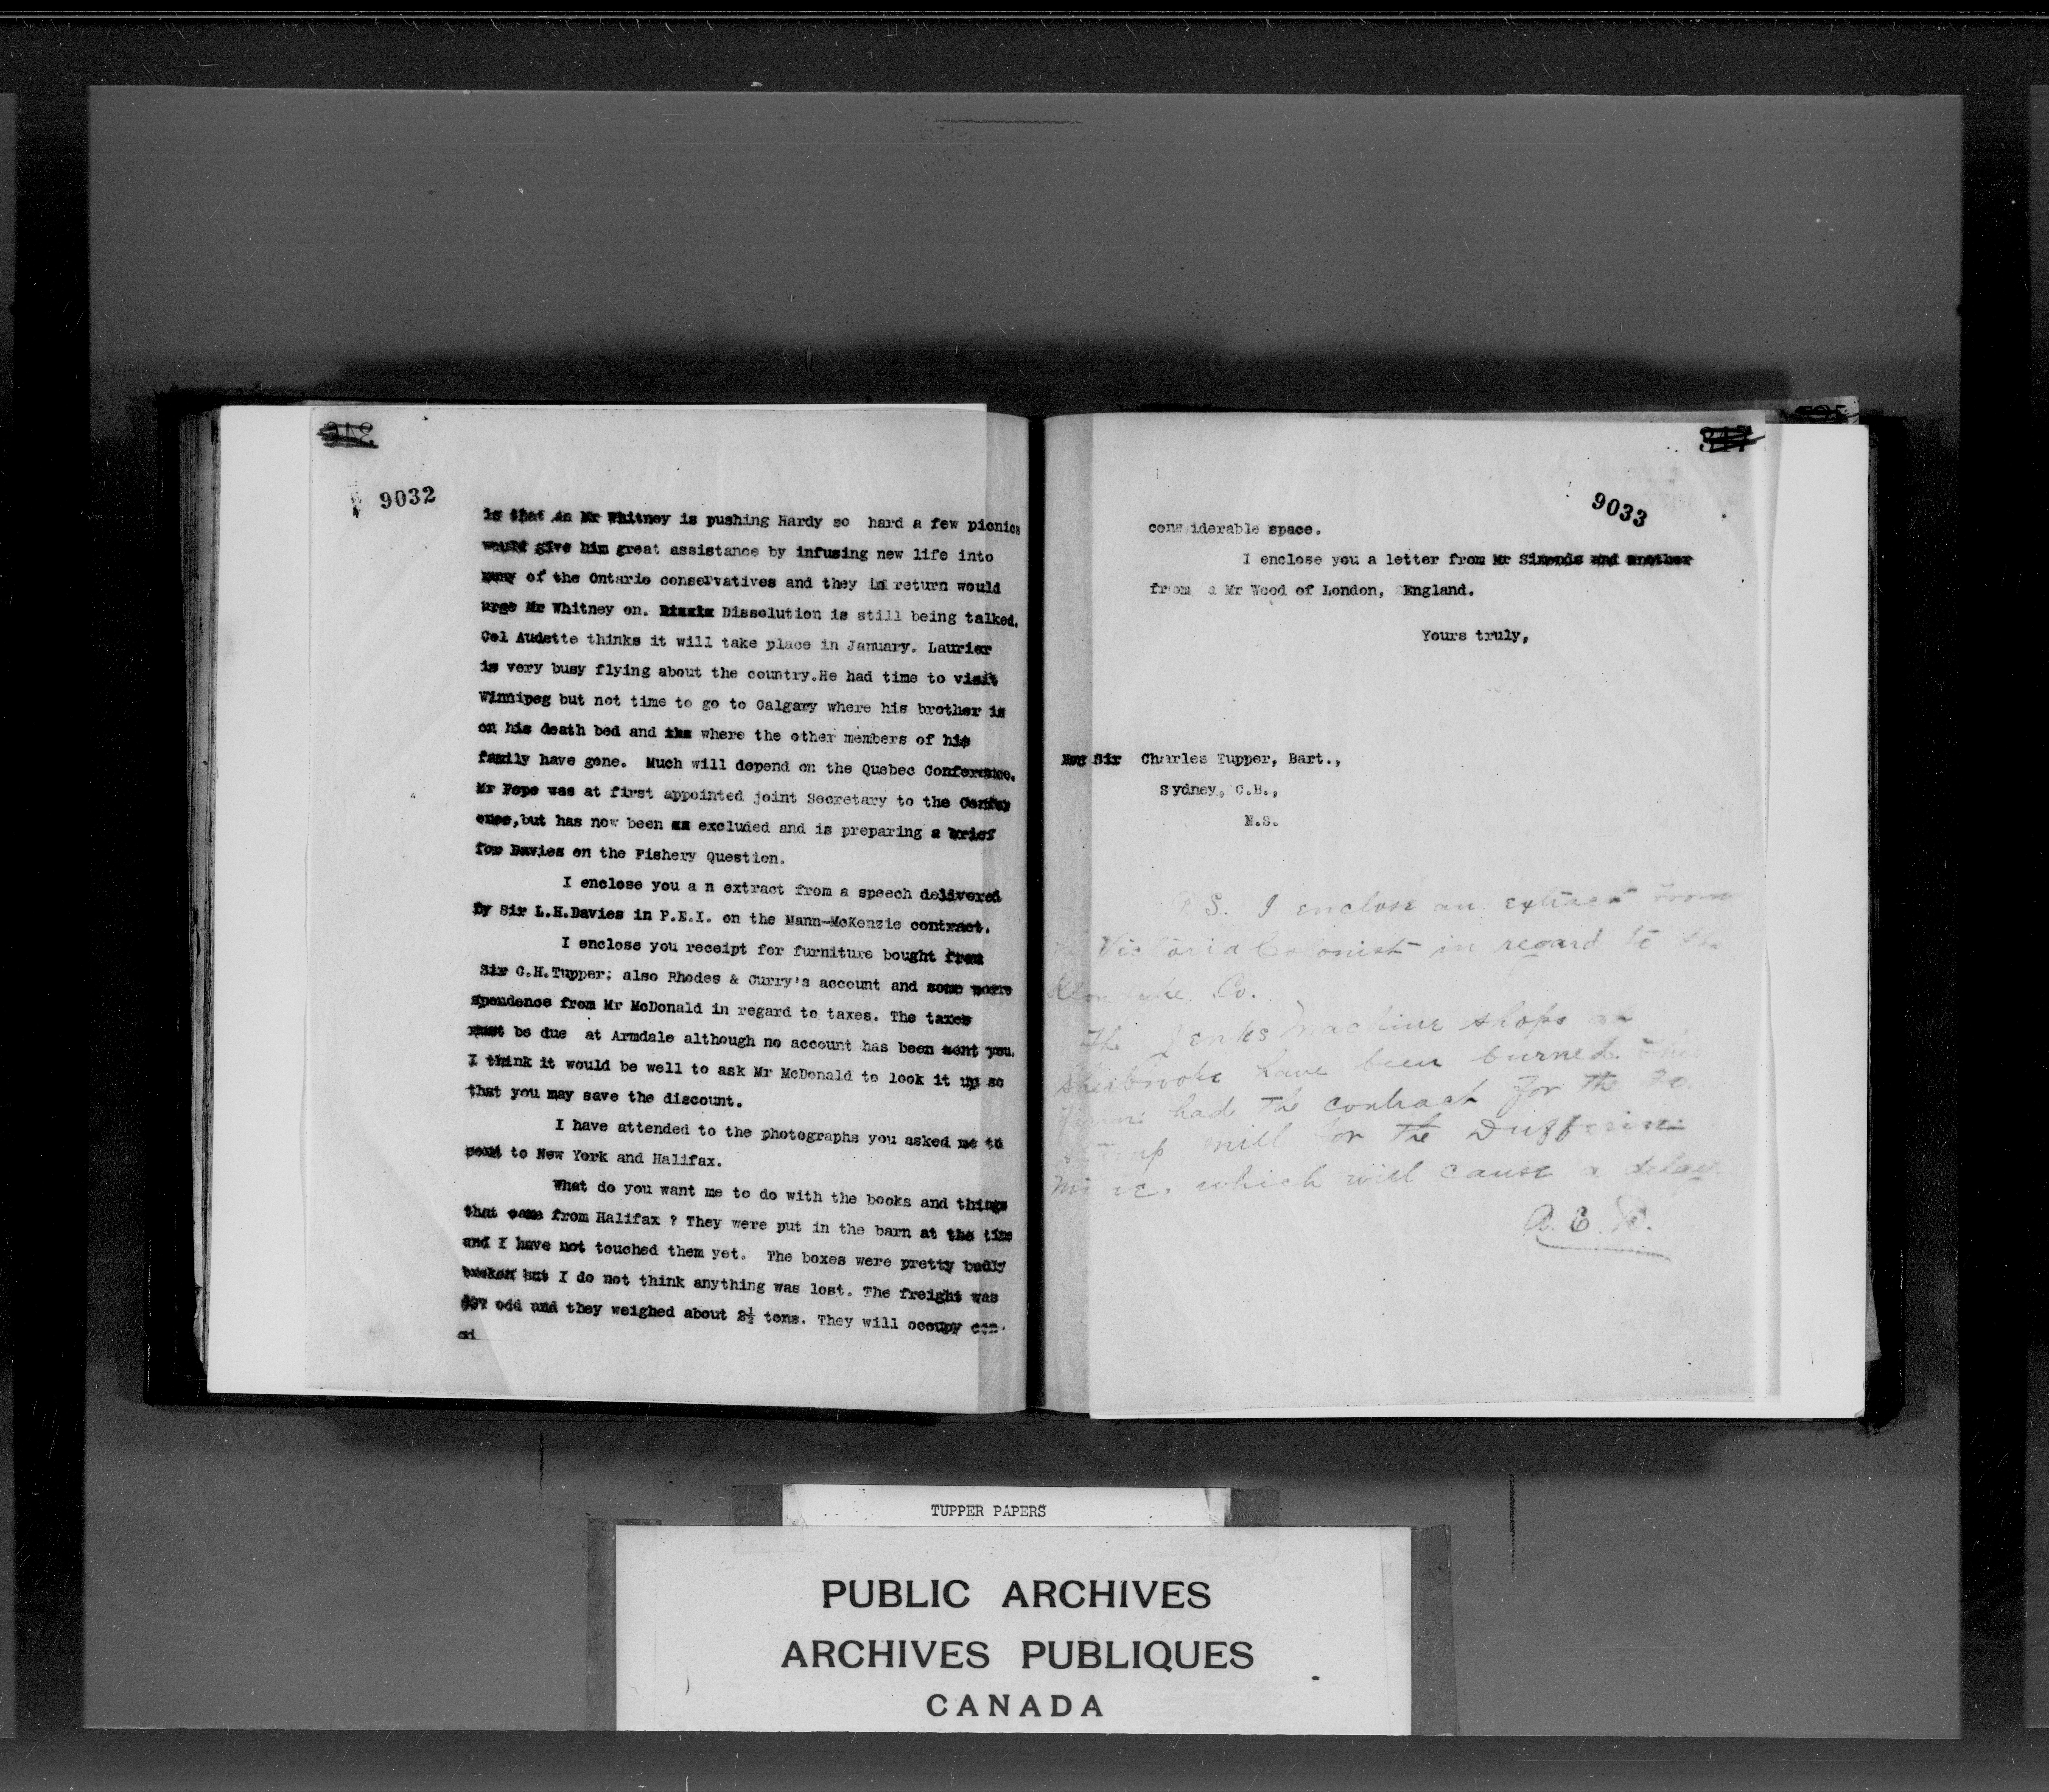 9032
is that as Mr Whitney is pushing Hardy so hard a few picnics
would give him great assistance by infusing new life into
many of the Ontario conservatives and they in return would
urge Mr Whitney on. Dissolution is still being talked.
Col Audette thinks it will take place in January. Laurier
is very busy flying about the country.He had time to visit
Winnipeg but not time to go to Calgary where his brother is
on his death bed and the where the other members of his
family have gone. Much will depend on the Quebec Conference.
Mr Pope was at first appointed joint Secretary to the Confer
ence,but has now been excluded and is preparing a brief
for Davies on the Fishery Question.
I enclose you a n extract from a speech delivered
by Sir L.H.Davies in P.E.I. on the Mann-McKenzie contract.
I enclose you receipt for furniture bought from
Sir C.H.Tupper; also Rhodes & Curry's account and some corre
spondence from Mr McDonald in regard to taxes. The taxes
must be due at Armdale although no account has been sent you.
I think it would be well to ask Mr McDonald to look it up so
that you may save the discount.
I have attended to the photographs you asked me to
send to New York and Halifax.
What do you want me to do with the books and things
that came from Halifax ? They were put in the barn at the time
and I have not touched them yet. The boxes were pretty badly
broken but I do not think anything was lost. The freight was
odd and they weighed about 2½ tons. They will occupy con-
si
347
9033
considerable space.
I enclose you a letter from Mr Simonds and another
from a Mr Wood of London, England.
Yours truly,
Sir Charles Tupper, Bart.,
Sydney, C.B.,
N.S.
P.S. I enclose an extract from
the Victoria Colonist in regard to the
Klondyke Co.
The Jenks Machine shops at
Sherbrooke have been burned. The
had the contract for the 20
stamp mill for the Dufferin
Mine. which will cause a delay
TUPPER PAPERS
PUBLIC ARCHIVES
ARCHIVES PUBLIQUES
CANADA